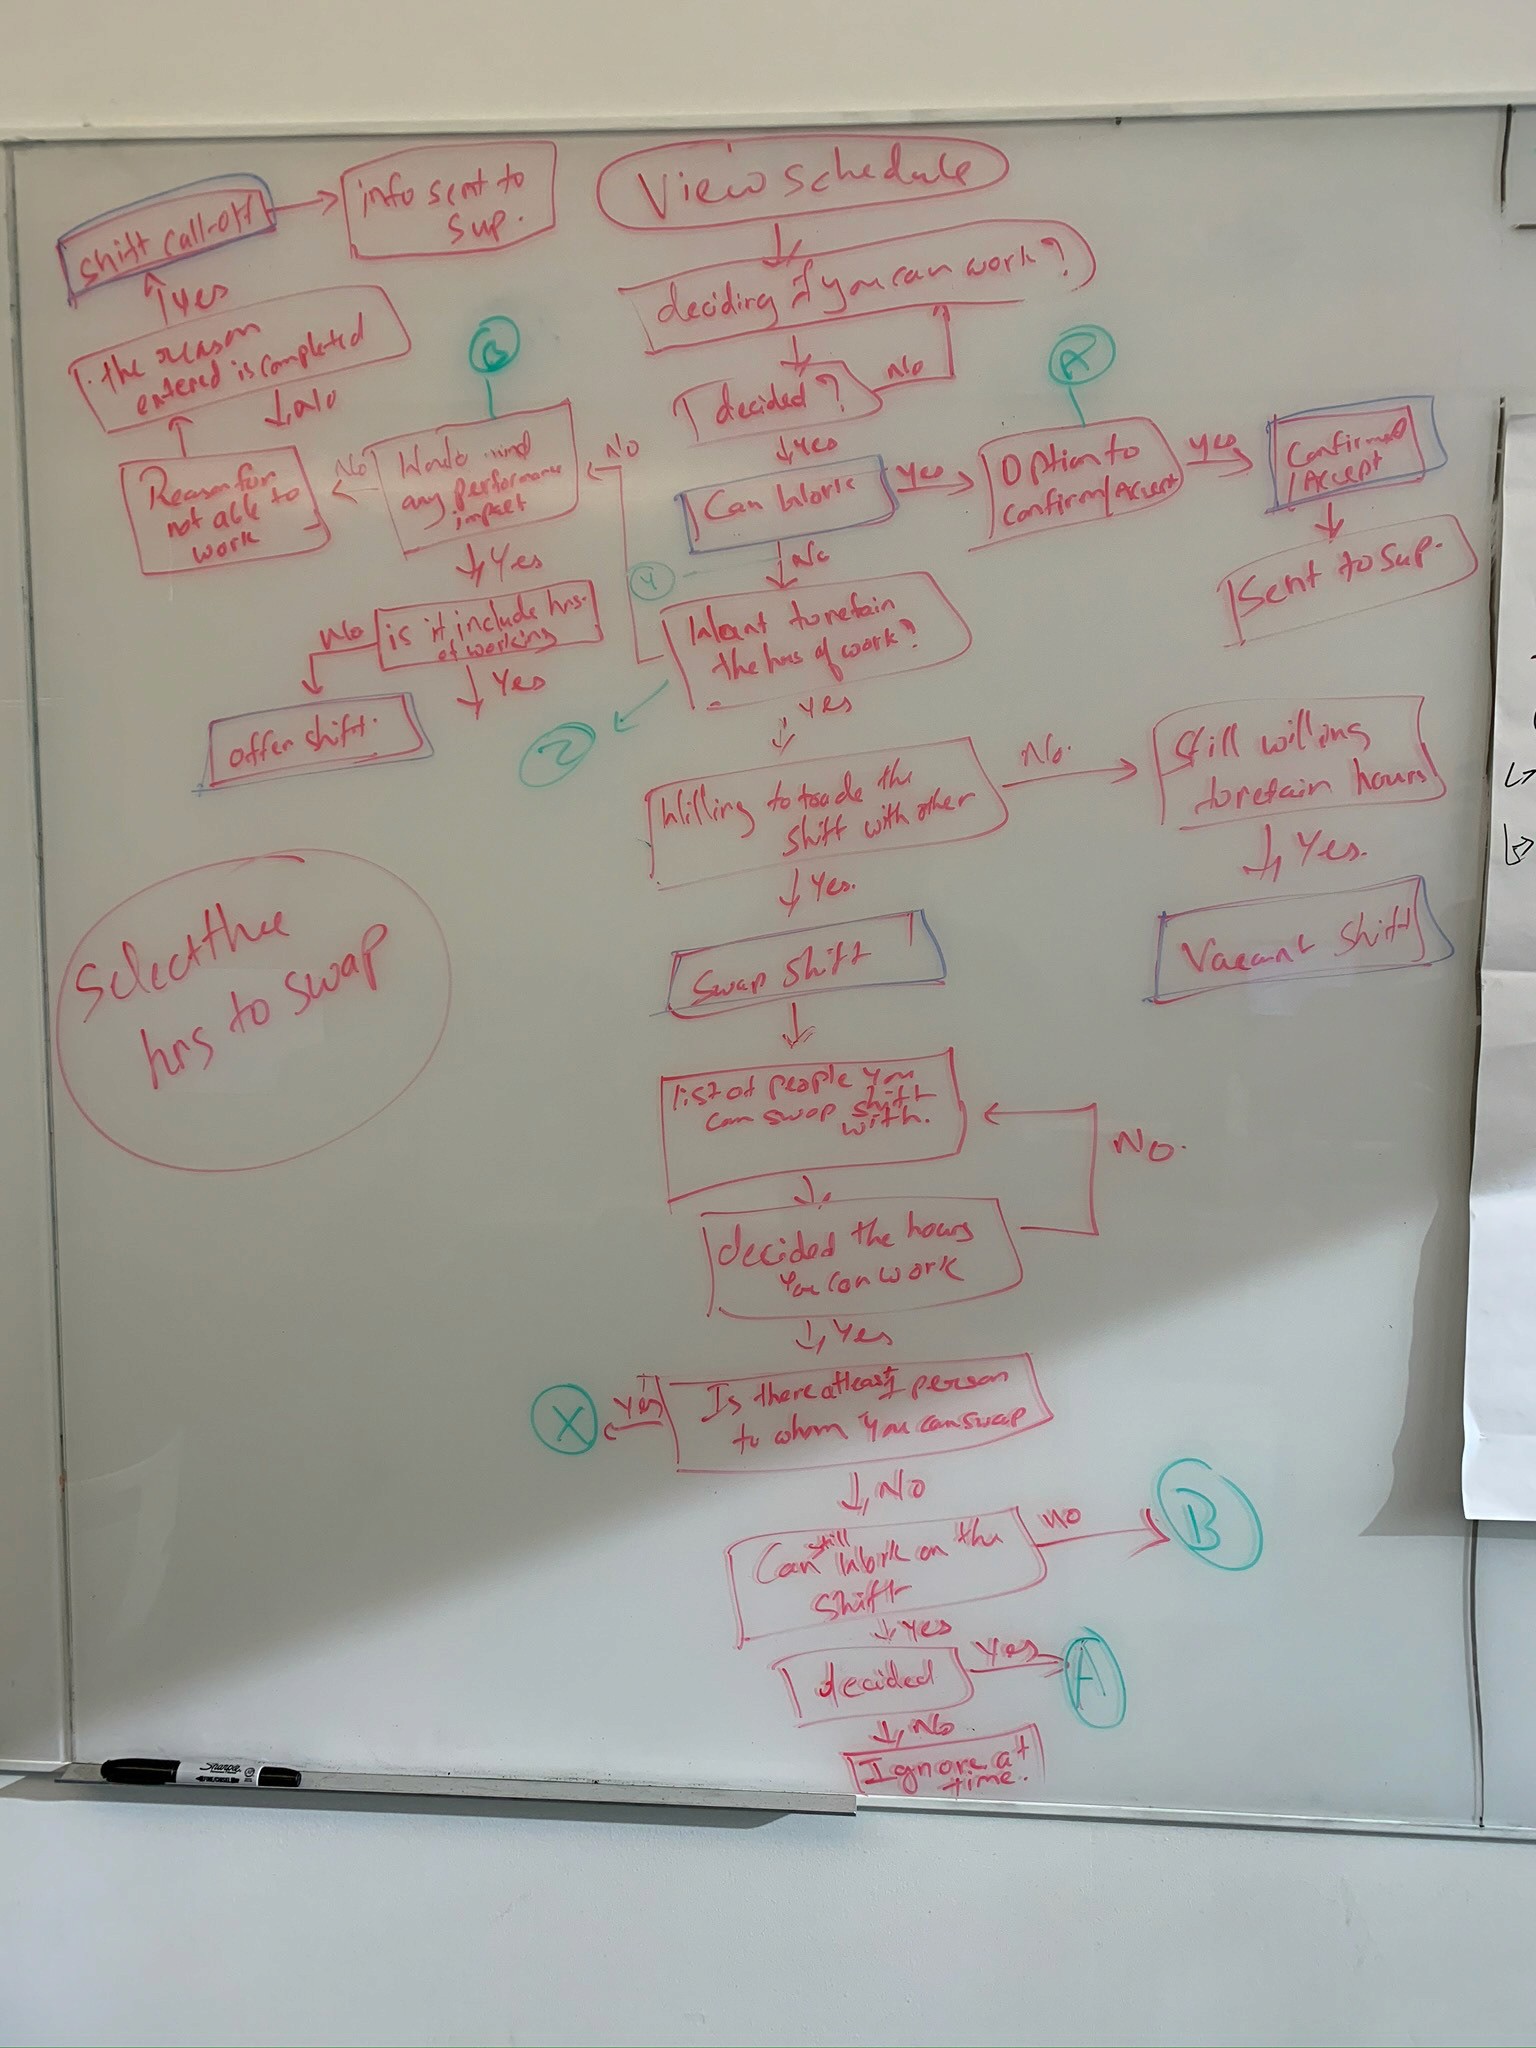 View schedule
deciding if you can work?
decided?
No
Yes
Can Work
Yes
A
Option to
confirm/Accept
Yes
Confirmed
/Accept
Sent to Sup.
No
Y
Want to retain
the hrs of work?
Z
No
B
any performance
impact
No
Reason for
not able to
work
the reason
entered is completed
No
Yes
Shift call-off
info sent to
Sup.
Yes
is it include hrs.
of working
No
offer shift.
Yes
Yes
Willing to trade the
shift with other
No.
Still willing
to retain hours
Yes.
Vacant Shift
Yes.
Swap Shift
list of people you
can swap shift
with.
decided the hours
You can work
No.
Yes
Is there atleast 1 person
to whom You can swap
Yes
X
No
Can still Work on the
shift
No
B
Yes
decided
Yes
A
No
Ignore at
time.
Select the
hrs to swap
Sharpie